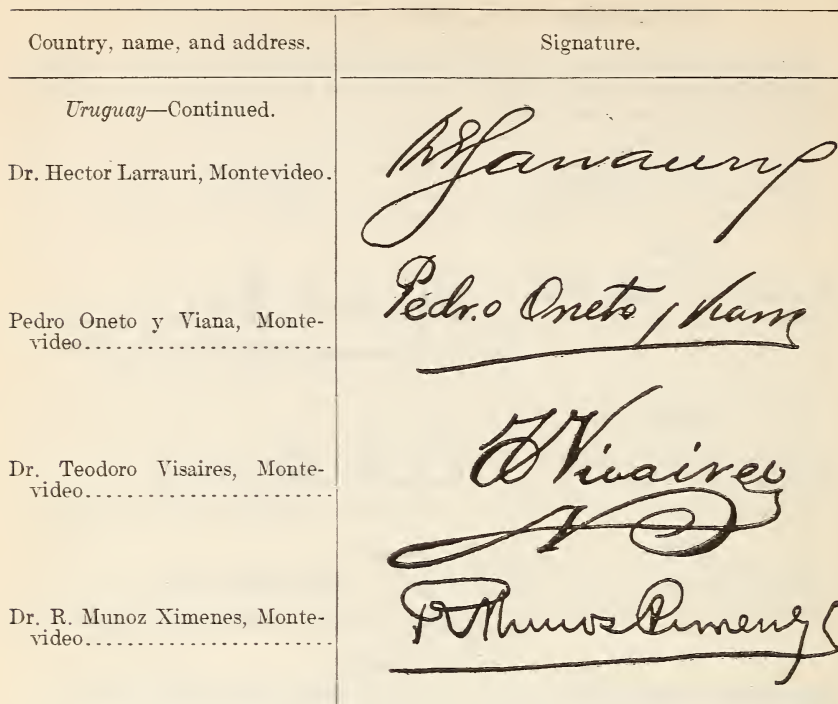 Country, name, and address. Signature.
Uruguay—Continued.
Dr. Hector Larrauri, Montevideo.
Pedro Oneto y Viana, Monte-
video........................
Pedro Oneto y Viana
Dr. Teodoro Visaires, Monte-
video........................
Dr. R. Munoz Ximenes, Monte-
video........................